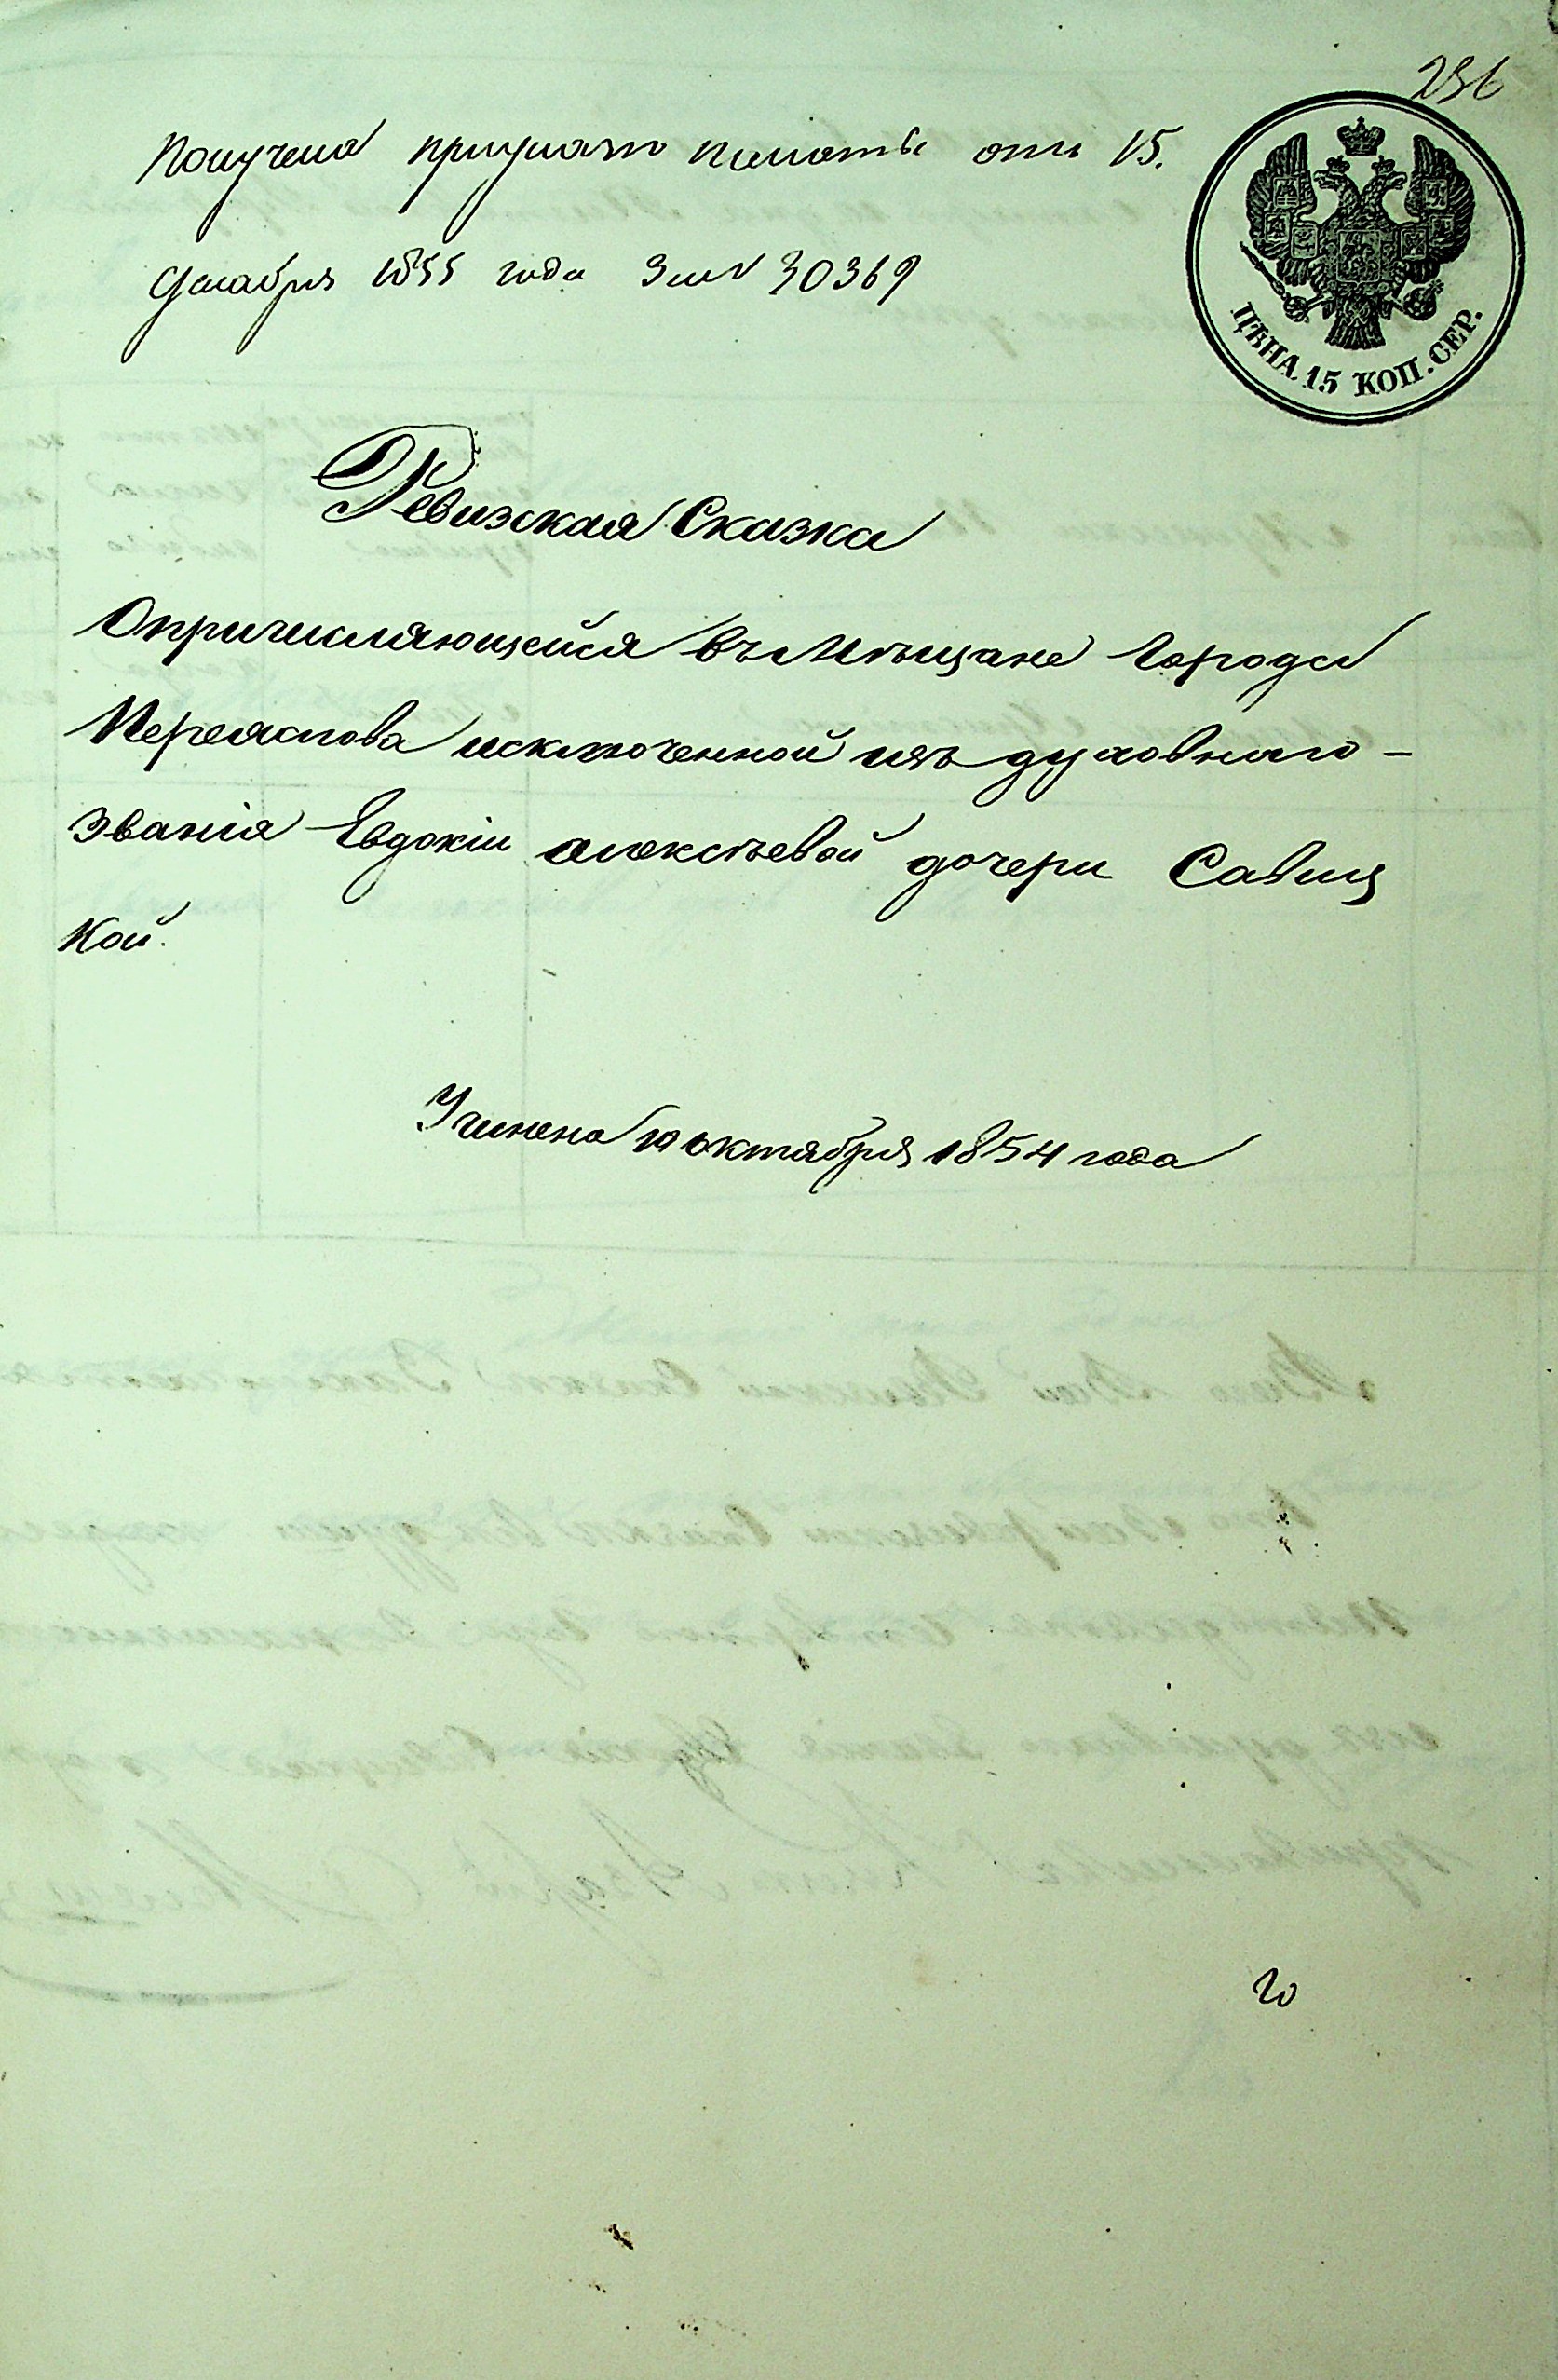 236
Получена при указе палаты отъ 15.
Декабря 1855 года за № 30369
ЦѢНА 15 КОП. СЕР.
Ревизская Сказка
О причисляющейся въ Мѣщане города
Переяслова исключенной изъ духовнаго -
званія Евдокіи Алексѣевой дочери Савиц
кой.
Учинена 10 октября 1854 года